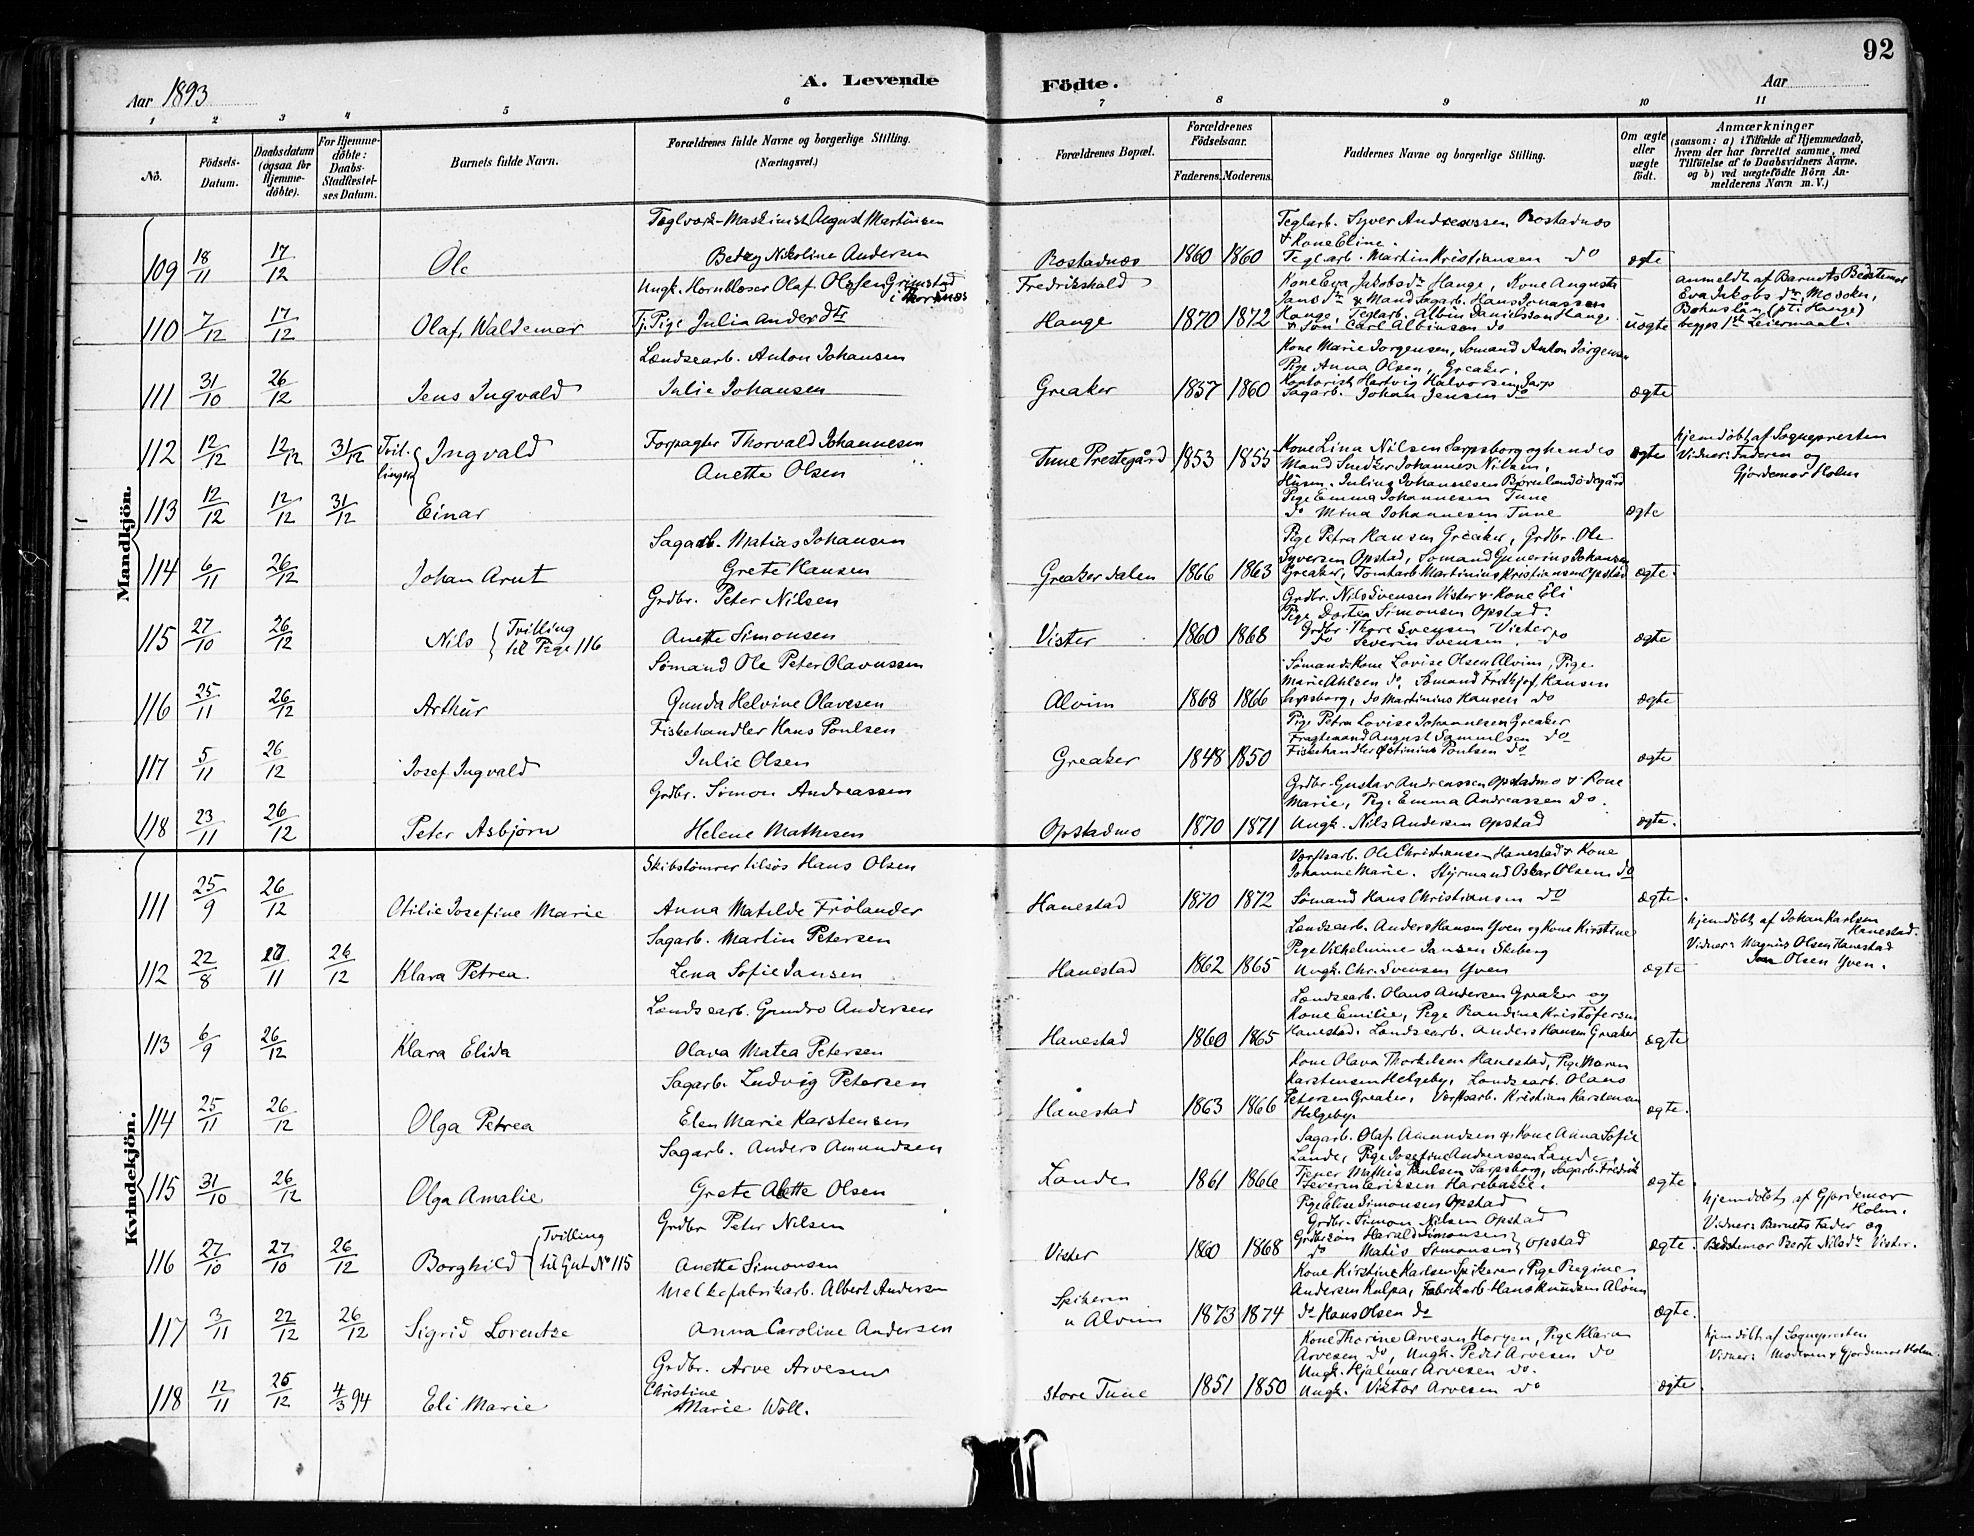 92
Aar 1893
A. Levende
Födte.
Aar
1 2 3 4 5 6 7 8 9 10 11
No.
Födsels-Datum.
Daabsdatum (ogsaa for Hjemme-döbte).
For Hjemme-döbte: Daabs-Stadfæstel-ses Datum.
Barnets fulde Navn.
Forældrenes fulde Navne og borgerlige Stilling. (Næringsvei.)
Forældrenes Bopæl.
Forældrenes Födselsaar.
Faderens. Moderens.
Faddernes Navne og borgerlige Stilling.
Om ægte eller uægte födt.
Anmærkninger
(saasom: a) i Tilfælde af Hjemmedaab, hvem der har forrettet samme, med Tilföielse af to Daabsvidners Navne, og b) ved uægtefödte Börn Anmelderens Navn m. V.)
Mandkjön.
109 18/11 17/12 Ole
Teglværk-Maskinist August Martinsen
Betzy Nikoline Andersen
Rostadnæs 1860 1860
Teglarb. Syver Andreassen Rostadnæs
& Kone Eline.
Teglarb. Martin Kristiansen do
ægte
110 7/12 17/12 Olaf Waldemar
Ungk. Hornblæser Olaf Olsen Grimstad
Tj. Pige Julia Andersdtr
Fredrikshald
Hauge 1870 1872
Kone Eva Jakobsdr Hauge, Kone Augusta
Jansdr & Mand Sagarb. Hans Jonassen
Hauge, Teglarb. Albin Danielsson Hauge
& Søn Carl Albinson do
uægte
anmeldt af Barnets Bedstemor
Eva Jakobsdr, Mosoken,
Bohuslän (pt. Hauge)
begges 1st Leiermaal.
111 31/10 26/12 Jens Ingvald
Lændsearb. Anton Johansen
Julie Johansen
Greaker 1857 1860
Kone Marie Jorgensen, Sømand Anton Jørgensen
Pige Anna Olsen, Greaker.
Kontorist Hartvig Halvorsen Sarp
Sagarb. Johan Jensen do
ægte
112 12/12 12/12 31/12 Tvil-linger Ingvald
Forpagter Thorvald Johannesen
Anette Olsen
Tune Prestegård 1853 1855
Kone Lina Nilsen Sarpsborg og hendes
Mand Snedker Johannes Nilsen,
Husm. Julius Johannesen Bjørnlandødegård
Pige Emma Johannesen Tune
do Mina Johannesen Tune
ægte
hjemdöbt af Sognepresten
Vidner: Faderen og
Gjordemor Holm
113 12/12 12/12 31/12 Einar
ægte
114 6/11 26/12 Johan Arnt
Sagarb. Matias Johansen
Grete Hansen
Greakerdalen 1866 1863
Pige Petra Hansen Greaker, Grdbr. Ole
Syversen Opstad, Sømand Gunerius Johansen
Greaker, Tomtarb. Martinius Kristiansen Opstad
ægte.
115 27/10 26/12 Nils { Tvilling til Pige 116
Grdbr. Peter Nilsen
Anette Simonsen
Vister 1860 1868
Grdbr. Nils Svensen Vister & Kone Eli
Pige Dortea Simonsen Opstad.
Grdbr. Thore Svensen Vister
do Severin Svensen do
ægte
116 25/11 26/12 Arthur
Sømand Ole Peter Olavussen
Gunda Helvine Olavesen
Alvim 1868 1866
Sømands Kone Lovise Olsen Alvim, Pige
Marie Ahlsen do, Sømand Frithjof Hansen
Sarpsborg, do Martinius Hansen do
ægte
117 5/11 26/12 Josef Ingvald
Fiskehandler Hans Poulsen
Julie Olsen
Greaker 1848 1850
Pige Petra Lovise Johannesen Greaker
Fragtemand August Samuelsen do
Fiskehandler Østinius Poulsen do
ægte
118 23/11 26/12 Peter Asbjørn
Grdbr. Simon Andreassen
Helene Mathesen
Opstadmo 1870 1871
Grdbr Gustav Andreassen Opstadmo & Kone
Marie, Pige Emma Andreassen do.
Ungk. Nils Andersen Opstad
ægte.
Kvindekjön.
111 25/9 26/12 Otilie Josefine Marie
Skibstømrer tilsøs Hans Olsen
Anna Matilde Frölander
Hanestad 1870 1872
Verftsarb. Ole Christiansen Hanestad & Kone
Johanne Marie. Styrmand Oskar Olsen do
Sømand Hans Christiansen do
ægte.
112 22/8 /11 26/12 Klara Petrea
Sagarb. Martin Petersen
Lena Sofie Jansen
Hanestad 1862 1865
Lændsearb. Anders Hansen Yven og Kone Kirstine
Pige Vilhelmine Jansen Skeberg
Ungk. Chr. Svensen Yven
ægte
hjemdöbt af Johan Karlsen
Hanestad.
Vidner: Magnus Olsen Hanestad
Olsen Yven.
113 6/9 26/12 Klara Elida
Lændsearb. Gundro Andersen
Olava Matea Petersen
Hanestad 1860 1865
Lændsearb. Olaus Andersen Greaker og
Kone Emilie, Pige Randine Kristofersen
Hanestad. Lændsearb. Anders Hansen Greaker
ægte
114 25/11 26/12 Olga Petrea
Sagarb. Ludvig Petersen
Elen Marie Karstensen
Hånestad 1863 1866
Kone Olava Thorkelsen Hanestad, Pige Maren
Karstensen Helgeby, Landsearb. Olaus
Petersen Greaker, Verftsarb. Kristian Karstensen
Helgeby.
ægte.
115 31/10 26/12 Olga Amalie
Sagarb. Anders Amundsen
Grete Alette Olsen
Lande 1861 1866
Sagarb. Olaf Amundsen & Kone Anna Sofie
Lande, Pige Josefine Andreassen Lande,
Tjener Mathis Paulsen Sarpsborg, Sagarb. Fredrik
Severin Erikssen Harebakke.
ægte.
116 27/10 27/10 26/12 Borghild { Tvilling til Gut No 115
Grdbr Peter Nilsen
Anette Simonsen
Vister 1860 1868
Pige Elise Simonsen Opstad
Grdbr. Simon Nilsen Opstad
Grdbrsøn Harald Simonsen
do Matis Simonsen } Opstad
ægte.
hjemdöbt af Gjordemor
Holm.
Vidner: Barnets Fader og
Bedstemor Berte Nilsdr Vister.
117 3/11 22/12 26/12 Sigrid Lorentze
Melkefabrikarb. Albert Andersen
Anna Caroline Andersen
Spikeren
u Alvim 1873 1874
Kone Kirstine Karlsen Spikeren, Pige Regine
Andersen Kulpa, Fabrikarb. Hans Knudsen Alvim
do Hans Olsen do
ægte.
118 12/11 25/12 4/3 94 Eli Marie
Grdbr. Arve Arvesen
Christine
Marie Woll.
Store Tune 1851 1850
Kone Thorine Arvesen Horgen, Pige Klara
Arvesen do, Ungk. Peder Arvesen do
Ungk. Hjalmar Arvesen do.
Ungk. Viktor Arvesen do
ægte.
hjemdöbt af Sognepresten
Vidner: Moderen & Gjordemor Holm.